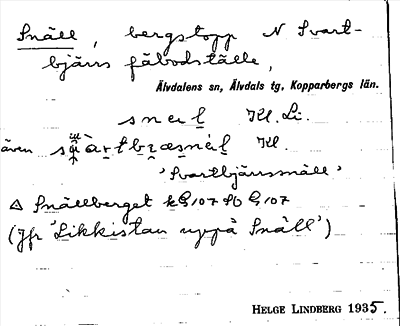 Snäll, bergstopp N Svart-
bjärs fäbodställe,
Älvdalens sn, Älvdals tg, Kopparbergs län.
Kl. Li.
även Kl.
'Svartbjärssnäll'
Snällberget
(Jfr 'Likkistan uppå Snäll')
HELGE LINDBERG 1935.